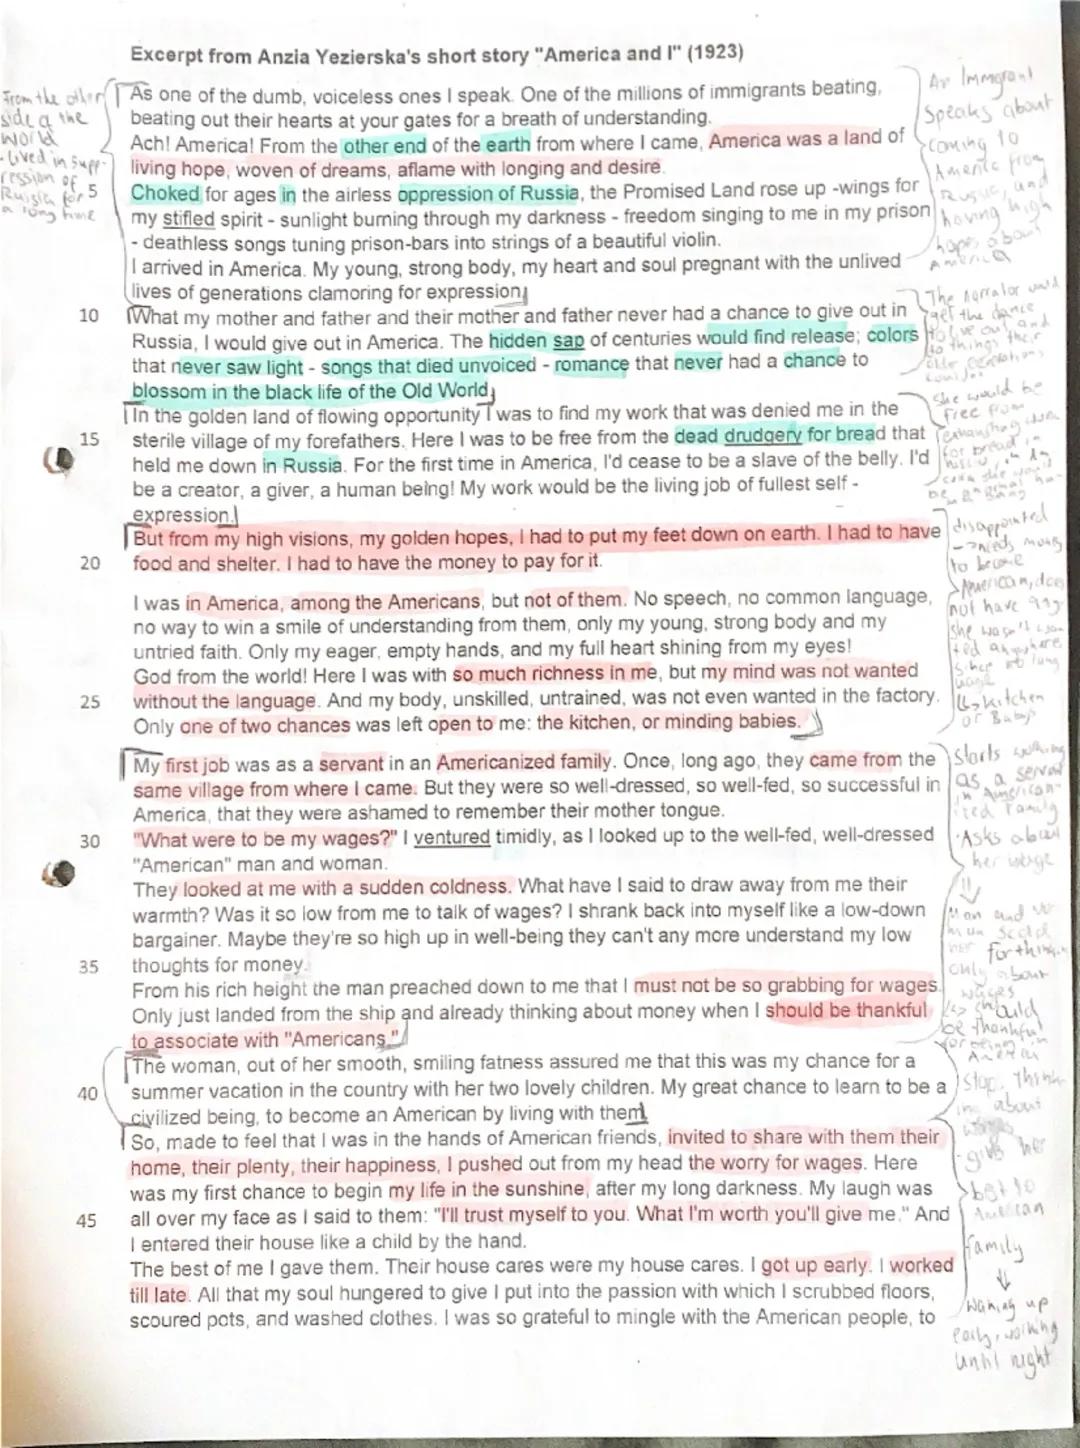 Excerpt from Anzia Yezierska's short story "America and I" (1923)
As one of the dumb, voiceless ones I speak. One of the millions of immigrants beating,
beating out their hearts at your gates for a breath of understanding.
Ach! America! From the other end of the earth from where I came, America was a land of
living hope, woven of dreams, aflame with longing and desire.
5 Choked for ages in the airless oppression of Russia, the Promised Land rose up -wings for
my stifled spirit - sunlight burning through my darkness - freedom singing to me in my prison
- deathless songs tuning prison-bars into strings of a beautiful violin.
I arrived in America. My young, strong body, my heart and soul pregnant with the unlived
lives of generations clamoring for expression.
10 What my mother and father and their mother and father never had a chance to give out in
Russia, I would give out in America. The hidden sap of centuries would find release; colors
that never saw light - songs that died unvoiced - romance that never had a chance to
blossom in the black life of the Old World.
In the golden land of flowing opportunity I was to find my work that was denied me in the
15 sterile village of my forefathers. Here I was to be free from the dead drudgery for bread that
held me down in Russia. For the first time in America, I'd cease to be a slave of the belly. I'd
be a creator, a giver, a human being! My work would be the living job of fullest self -
expression.
But from my high visions, my golden hopes, I had to put my feet down on earth. I had to have
20 food and shelter. I had to have the money to pay for it.
I was in America, among the Americans, but not of them. No speech, no common language,
no way to win a smile of understanding from them, only my young, strong body and my
untried faith. Only my eager, empty hands, and my full heart shining from my eyes!
God from the world! Here I was with so much richness in me, but my mind was not wanted
25 without the language. And my body, unskilled, untrained, was not even wanted in the factory.
Only one of two chances was left open to me: the kitchen, or minding babies.
My first job was as a servant in an Americanized family. Once, long ago, they came from the
same village from where I came. But they were so well-dressed, so well-fed, so successful in
America, that they were ashamed to remember their mother tongue.
30 "What were to be my wages?" I ventured timidly, as I looked up to the well-fed, well-dressed
"American" man and woman.
They looked at me with a sudden coldness. What have I said to draw away from me their
warmth? Was it so low from me to talk of wages? I shrank back into myself like a low-down
bargainer. Maybe they're so high up in well-being they can't any more understand my low
35 thoughts for money.
From his rich height the man preached down to me that I must not be so grabbing for wages.
Only just landed from the ship and already thinking about money when I should be thankful
to associate with "Americans."
The woman, out of her smooth, smiling fatness assured me that this was my chance for a
40 summer vacation in the country with her two lovely children. My great chance to learn to be a
civilized being, to become an American by living with them.
So, made to feel that I was in the hands of American friends, invited to share with them their
home, their plenty, their happiness, I pushed out from my head the worry for wages. Here
was my first chance to begin my life in the sunshine, after my long darkness. My laugh was
45 all over my face as I said to them: "I'll trust myself to you. What I'm worth you'll give me." And
I entered their house like a child by the hand.
The best of me I gave them. Their house cares were my house cares. I got up early. I worked
till late. All that my soul hungered to give I put into the passion with which I scrubbed floors,
scoured pots, and washed clothes. I was so grateful to mingle with the American people, to
From the other
side of the
World
- Lived in supp-
ression of
Russia for
a long time
An Immigrant
speaks about
coming to
America from
Russia, and
having high
hopes about
America
The narrator would
get the chance
to live out and
do things their
She would be
free from
disappointed
-> needs money
to become
American, does
not have any
kitchen
or Babys
Starts working
as a servant
in American-
ized family
Asks about
her wage
Man and wo-
man scold
her for thinking
only about
wages
should
be thankful
for being in
America
Stop thinking
about
wages
give her
best to
American
family
Waking up
early, working
until night